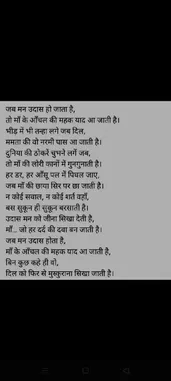 जब मन उदास हो जाता है,
तो माँ के आँचल की महक याद आ जाती है।
भीड़ में भी तन्हा लगे जब दिल,
ममता की वो नरमी पास आ जाती है।
दुनिया की ठोकरें चुभने लगें जब,
तो माँ की लोरी कानों में गुनगुनाती है।
हर डर, हर आँसू पल में पिघल जाए,
जब माँ की छाया सिर पर छा जाती है।
न कोई सवाल, न कोई शर्त वहाँ,
बस सुकून ही सुकून बरसाती है।
उदास मन को जीना सिखा देती है,
माँ... जो हर दर्द की दवा बन जाती है।
जब मन उदास होता है,
माँ के आँचल की महक याद आ जाती है,
बिन कुछ कहे ही वो,
दिल को फिर से मुस्कुराना सिखा जाती है।